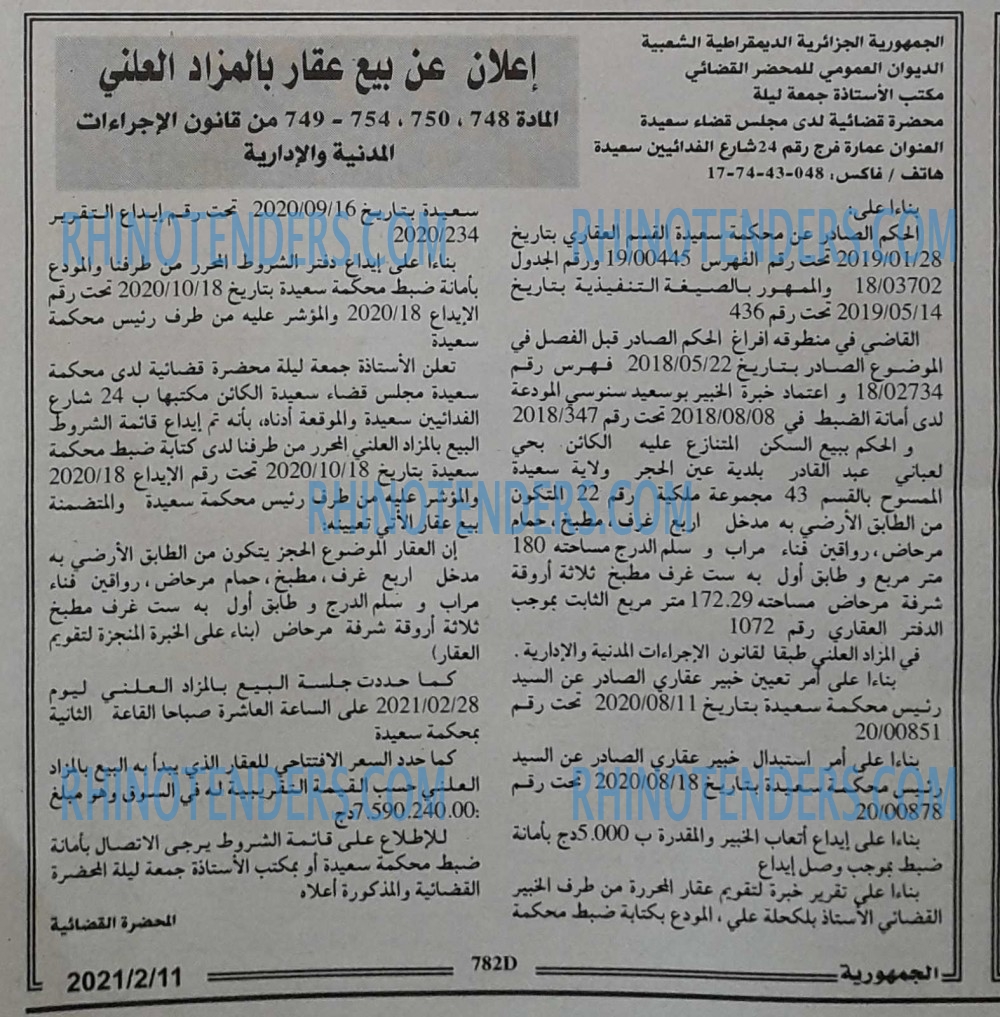 الجمهورية الجزائرية الديمقراطية الشعبية
الديوان العمومي للمحضر القضائي
مكتب الأستاذة جمعة ليلة
محضرة قضائية لدى مجلس قضاء سعيدة
العنوان عمارة فرج رقم 24شارع الفدائيين سعيدة
هاتف / فاكس: 048-43-74-17
إعلان عن بيع عقار بالمزاد العلني
المادة 748 ، 750 ، 754 - 749 من قانون الإجراءات
المدنية والإدارية
بناءا على:
الحكم الصادر عن محكمة سعيدة القسم العقاري بتاريخ
2019/01/28 تحت رقم الفهرس 19/00445 ورقم الجدول
18/03702 والممهور بالصيغة التنفيذية بتاريخ
2019/05/14 تحت رقم 436
القاضي في منطوقه افراغ الحكم الصادر قبل الفصل في
الموضوع الصادر بتاريخ 2018/05/22 فهرس رقم
18/02734 و اعتماد خبرة الخبير بوسعيد سنوسي المودعة
لدى أمانة الضبط في 2018/08/08 تحت رقم 2018/347
و الحكم ببيع السكن المتنازع عليه الكائن بحي
لعباني عبد القادر بلدية عين الحجر ولاية سعيدة
الممسوح بالقسم 43 مجموعة ملكية رقم 22 المتكون
من الطابق الأرضي به مدخل اربع غرف، مطبخ، حمام
مرحاض، رواقين فناء مراب و سلم الدرج مساحته 180
متر مربع و طابق أول به ست غرف مطبخ ثلاثة أروقة
شرفة مرحاض مساحته 172.29 متر مربع الثابت بموجب
الدفتر العقاري رقم 1072
في المزاد العلني طبقا لقانون الإجراءات المدنية والإدارية .
بناءا على أمر تعيين خبير عقاري الصادر عن السيد
رئيس محكمة سعيدة بتاريخ 2020/08/11 تحت رقم
20/00851
بناءا على أمر استبدال خبير عقاري الصادر عن السيد
رئيس محكمة سعيدة بتاريخ 2020/08/18 تحت رقم
20/00878
بناءا على إيداع أتعاب الخبير والمقدرة ب 5.000دج بأمانة
ضبط بموجب وصل إيداع
بناءا على تقرير خبرة لتقويم عقار المحررة من طرف الخبير
القضائي الأستاذ بلكحلة علي ، المودع بكتابة ضبط محكمة
سعيدة بتاريخ 2020/09/16 تحت رقم إيداع التقرير
2020/234
بناءا على إيداع دفتر الشروط المحرر من طرفنا والمودع
بأمانة ضبط محكمة سعيدة بتاريخ 2020/10/18 تحت رقم
الإيداع 2020/18 والمؤشر عليه من طرف رئيس محكمة
سعيدة
تعلن الأستاذة جمعة ليلة محضرة قضائية لدى محكمة
سعيدة مجلس قضاء سعيدة الكائن مكتبها ب 24 شارع
الفدائيين سعيدة والموقعة أدناه، بأنه تم إيداع قائمة الشروط
البيع بالمزاد العلني المحرر من طرفنا لدى كتابة ضبط محكمة
سعيدة بتاريخ 2020/10/18 تحت رقم الإيداع 2020/18
والمؤشر عليه من طرف رئيس محكمة سعيدة والمتضمنة
بيع عقار الآتي تعيينه:
إن العقار الموضوع الحجز يتكون من الطابق الأرضي به
مدخل اربع غرف، مطبخ، حمام مرحاض، رواقين فناء
مراب و سلم الدرج و طابق أول به ست غرف مطبخ
ثلاثة أروقة شرفة مرحاض (بناء على الخبرة المنجزة لتقويم
العقار)
كما حددت جلسة البيع بالمزاد العلني ليوم
2021/02/28 على الساعة العاشرة صباحا القاعة الثانية
بمحكمة سعيدة
كما حدد السعر الافتتاحي للعقار الذي يبدأ به البيع بالمزاد
العلني حسب القيمة التقريبية له في السوق وهو مبلغ
:7.590.240.00دج
للإطلاع على قائمة الشروط يرجى الاتصال بأمانة
ضبط محكمة سعيدة أو بمكتب الأستاذة جمعة ليلة المحضرة
القضائية والمذكورة أعلاه
المحضرة القضائية
الجمهورية
782D
2021/2/11
RHINOTENDERS.COM
RHINOTENDERS.COM
RHINOTENDERS.COM
RHINOTENDERS.COM
RHINOTENDERS.COM